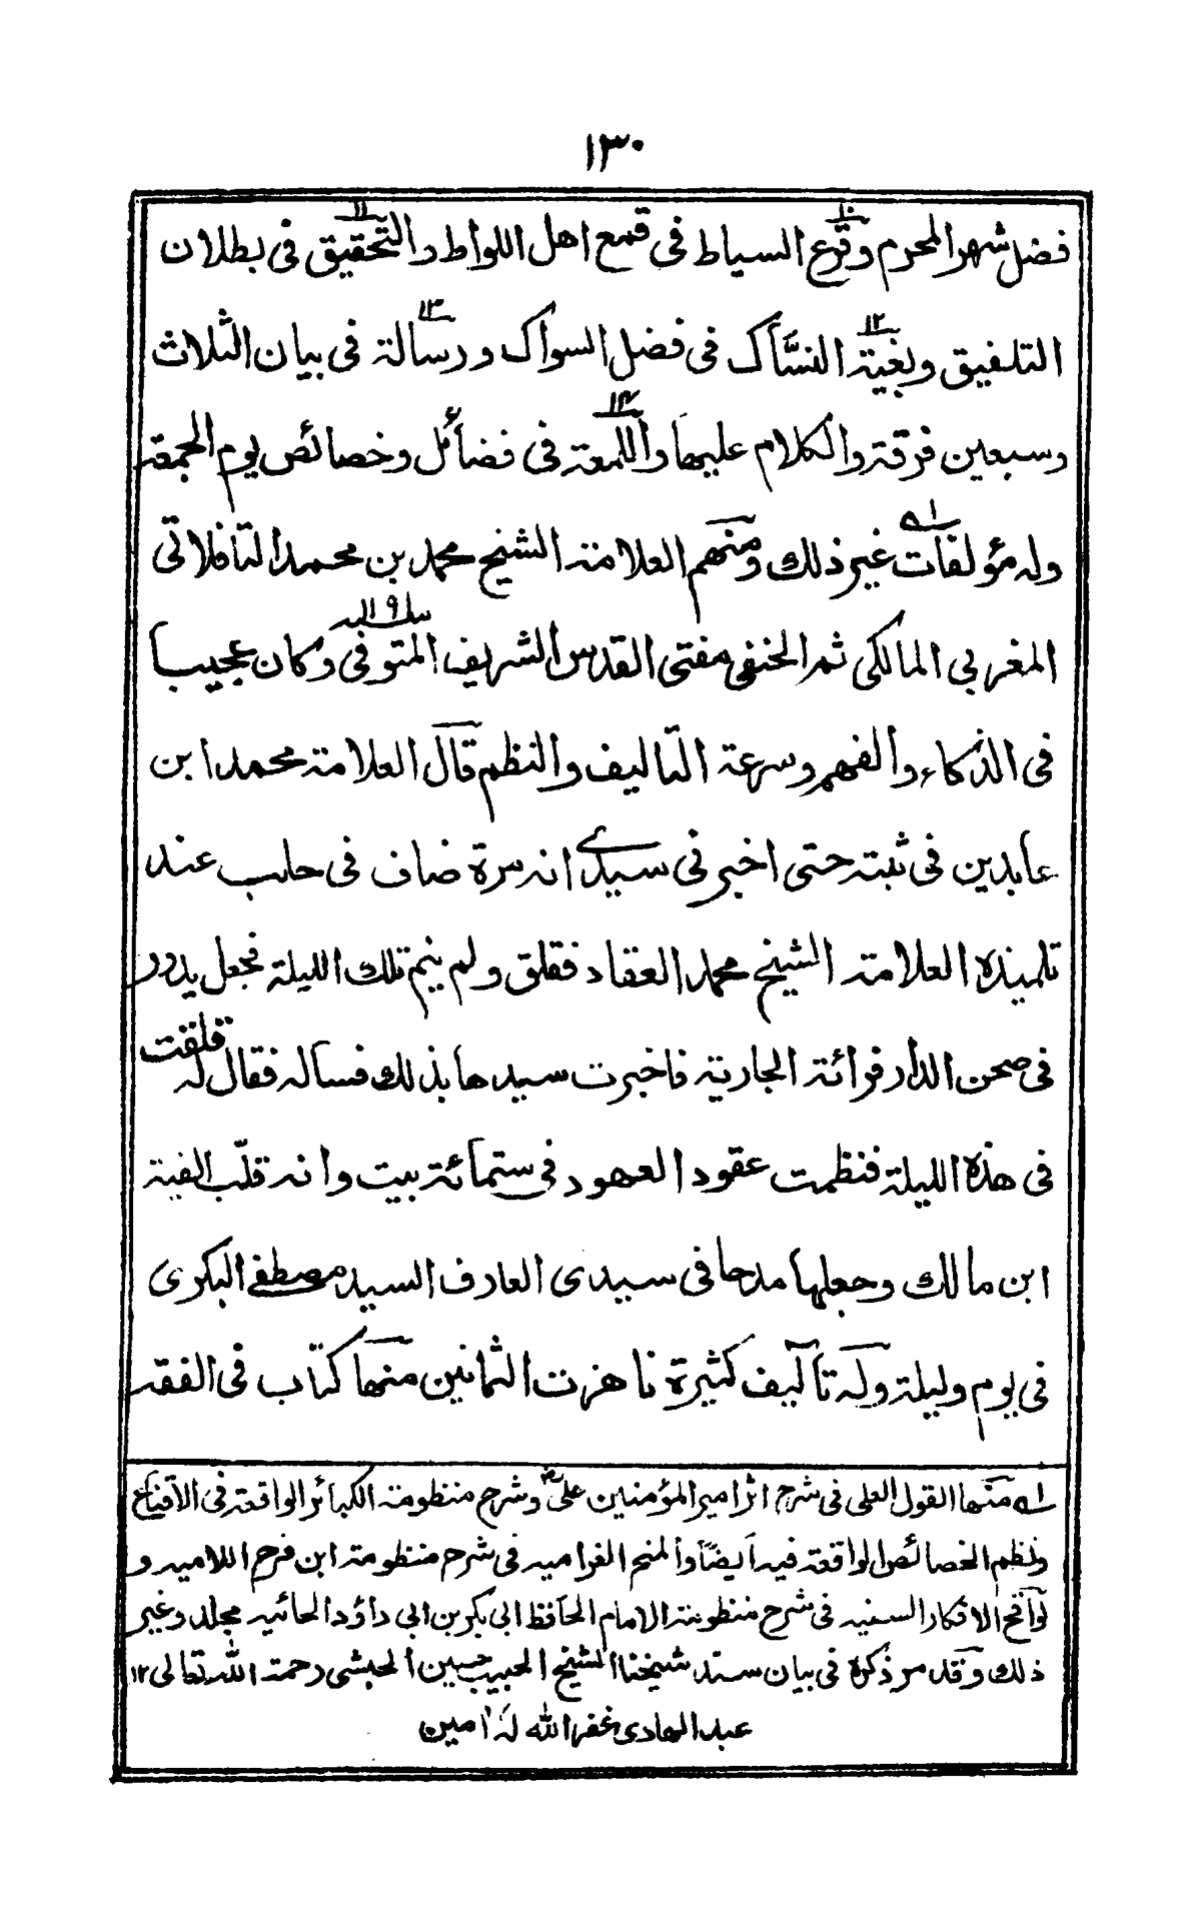 ١٣٠
فضل شهر المحرم وقرع السياط فى قمع اهل اللواط والتحقيق فى بطلان
التلفيق وبغية النسَّاك فى فضل السواك ورسالة فى بيان الثلاث
وسبعين فرقة والكلام عليها واللمعة فى فضائل وخصائص يوم الجمعة
وله مؤلفات غير ذلك ومنهم العلامة الشيخ محمد بن محمد التافلاتى
المغربي المالكى ثم الحنفى مفتى القدس الشريف المتوفى وكان عجيبا
فى الذكاء والفهم وسرعة التاليف والنظم قال العلامة محمد ابن
عابدين فى ثبته حتى اخبرنى سيدى انه مرة ضاف فى حلب عند
تلميذه العلامة الشيخ محمد العقاد فقلق ولم ينم تلك الليلة فجعل يدور
فى صحن الدار فرائته الجارية فاخبرت سيدها بذلك فساله فقال له قلقت
فى هذه الليلة فنظمت عقود العهود فى ستمائة بيت وانه قلّب الفية
ابن مالك وجعلها مدحا فى سيدى العارف السيد مصطفى البكرى
فى يوم وليلة وله تآليف كثيرة ناهزت الثمانين منها كتاب فى الفقه
له منها القول العلى فى شرح اثر امير المؤمنين على وشرح منظومة الكبائر الواقعة فى الاقناع
ونظم الخصائص الواقعة فيه ايضًا والمنح الغراميه فى شرح منظومة ابن فرح اللاميه و
لوآئح الافكار السنيه فى شرح منظومة الامام الحافظ ابى بكر بن ابى داؤد الحائيه مجلد وغير
ذلك وقد مر ذكره فى بيان سند شيخنا الشيخ الحبيب حسين الحبشى رحمة الله تعالى ١٢
عبد الهادى غفر الله له اٰمين